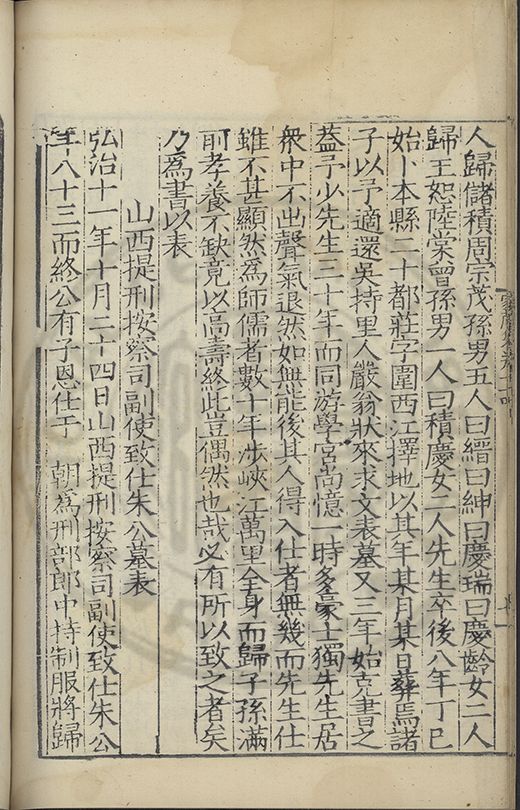 人歸儲積周宗茂孫男五人曰縉曰紳曰慶瑞曰慶齡女二人
歸王恕陸棠曾孫男一人曰積慶女二人先生卒後八年丁巳
始卜本縣二十都莊字圍西江擇地以其年某月某日葬焉諸
子以予適還吳持里人嚴翁狀來求文表墓又三年始克書之
葢予少先生三十年而同游學宮尚憶一時多豪士獨先生居
衆中不出聲氣退然如無能後其人得入仕者無幾而先生仕
雖不甚顯然為師儒者數十年涉峽江萬里全身而歸子孫滿
前孝養不缺竟以高壽終此豈偶然也哉必有所以致之者矣
乃為書以表
山西提刑按察司副使致仕朱公墓表
弘治十一年十月二十四日山西提刑按察司副使致仕朱公
年八十三而終公有子恩仕于 朝為刑部郎中持制服將歸